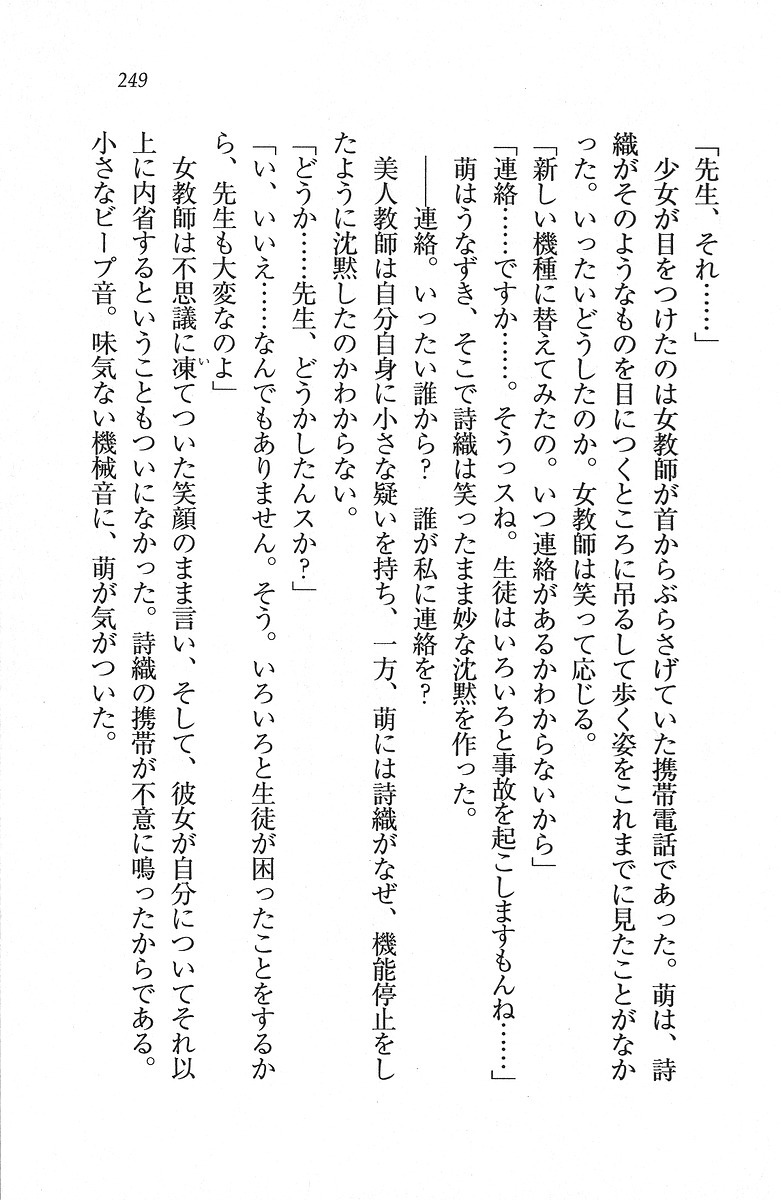 249
「先生、それ……」
　少女が目をつけたのは女教師が首からぶらさげていた携帯電話であった。萌は、詩
織がそのようなものを目につくところに吊るして歩く姿をこれまでに見たことがなか
った。いったいどうしたのか。女教師は笑って応じる。
「新しい機種に替えてみたの。いつ連絡があるかわからないから」
「連絡……ですか……。そうっスね。生徒はいろいろと事故を起こしますもんね……」
　萌はうなずき、そこで詩織は笑ったまま妙な沈黙を作った。
　――連絡。いったい誰から？　誰が私に連絡を？
　美人教師は自分自身に小さな疑いを持ち、一方、萌には詩織がなぜ、機能停止をし
たように沈黙したのかわからない。
「どうか……先生、どうかしたんスか？」
「い、いいえ……なんでもありません。そう。いろいろと生徒が困ったことをするか
ら、先生も大変なのよ」
　女教師は不思議に凍いてついた笑顔のまま言い、そして、彼女が自分についてそれ以
上に内省するということもついになかった。詩織の携帯が不意に鳴ったからである。
小さなビープ音。味気ない機械音に、萌が気がついた。